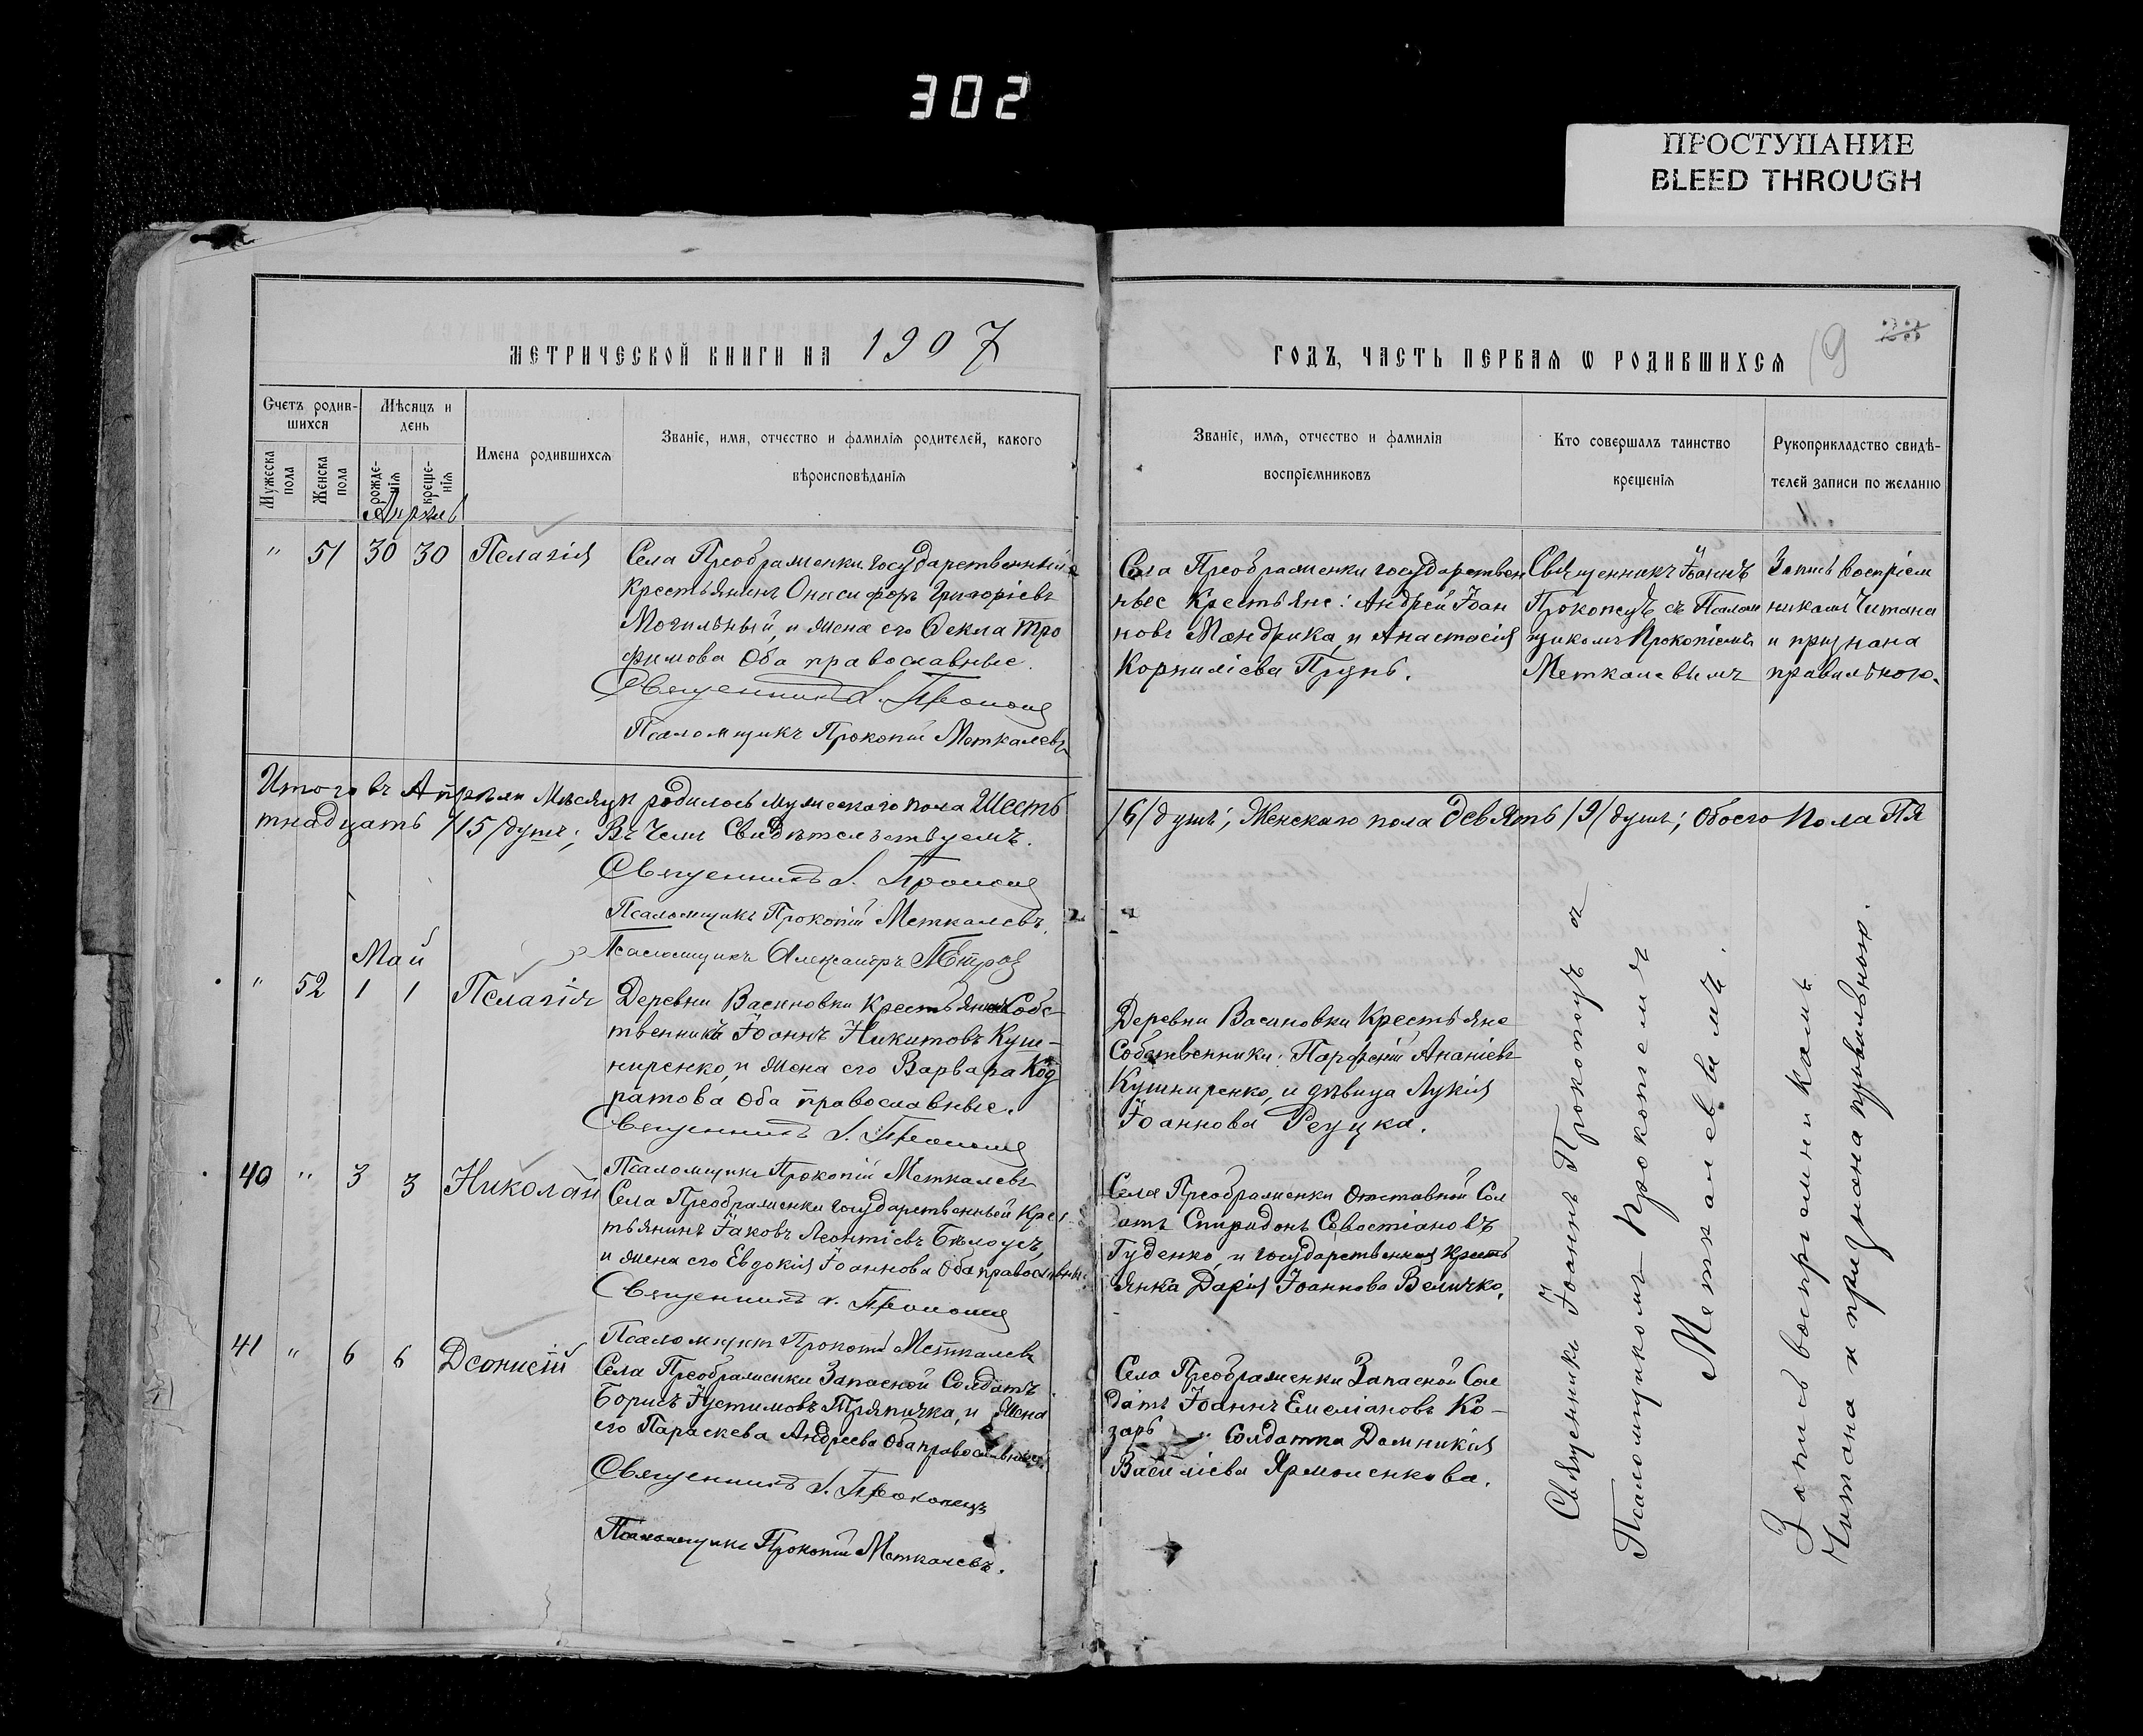 302
ПРОСТУПАНИЕ
BLEED THROUGH
МЕТРИЧЕСКОЙ КНИГИ НА 1907
ГОДЪ, ЧАСТЬ ПЕРВАЯ Ѡ РОДИВШИХСЯ
19 23
Счетъ родив-
шихся
Мужеска пола
Женска пола
Мѣсяцъ и день
рожде-
нія
креще-
нія
Имена родившихся
Званіе, имя, отчество и фамилія родителей, какого
вѣроисповѣданія
Званіе, имя, отчество и фамилія
воспріемниковъ
Кто совершалъ таинство
крещенія
Рукоприкладство свидѣ-
телей записи по желанію
Апрель
" 51 30 30 Пелагія
Села Преображенки государственный
Крестьянинъ Онисифоръ Григоріевъ
Могильный, и жена его Ѳекла Тро
фимова Оба православные.
Священникъ І. Прокопецъ
Псаломщикъ Прокопій Меткалевъ
Села Преображенки государствен
ные Крестьяне: Андрей Іоан
новъ Мандрика, и Анастасія
Корниліева Прунь.
Священникъ Іоаннъ
Прокопецъ съ Псалом
щикомъ Прокопіемъ
Меткалевымъ
Запись воспріем
никами Читана
и признана
правильною.
Итого въ Апрѣли Мѣсяцѣ родилось мужескаго пола Шесть
/6/ душъ; Женскаго пола Девять /9/ душъ; Обоего Пола Пя
тнадцать /15/ душъ; Въ Чемъ Свидѣтельствуемъ.
Священникъ І. Прокопецъ
Псаломщикъ Прокопій Меткалевъ.
Псаломщикъ Александръ Петров
Май
" 52 1 1 Пелагія
Деревни Васиновки Крестьянинъ Собс-
твенникъ Іоаннъ Никитовъ Куш-
ниренко, и жена его Варвара Код
ратова Оба православные.
Священникъ І. Прокопецъ
Псаломщикъ Прокопій Меткалевъ
Деревни Васиновки Крестьяне
Собственники: Парфеній Ананіевъ
Кушниренко, и дѣвица Лукія
Іоаннова Реуцка.
40 " 3 3 Николай
Села Преображенки государственный Крес
тьянинъ Іаковъ Леонтіевъ Бѣлоусъ,
и жена его Евдокія Іоаннова Оба православные
Священникъ І. Прокопецъ
Псаломщикъ Прокопій Меткалевъ
Села Преображенки Отставной Сол
датъ Спиридонъ Севостіановъ
Гуденко, и государственная Кресть
янка Дарія Іоаннова Величко.
41 " 6 6 Деонисій
Села Преображенки Запасной Солдатъ
Борисъ Іустимовъ Тряпичка, и жена
его Параскева Андреева Оба православные.
Священникъ І. Прокопецъ
Псаломщикъ Прокопій Меткалевъ.
Села Преображенки Запасной Сол
датъ Іоаннъ Емеліановъ Ко-
зарь и Солдатка Домникія
Василіева Ярмоленкова.
Священникъ Іоаннъ Прокопецъ съ
Псаломщикомъ Прокопіемъ
Меткалевымъ.
Запись воспріемниками
Читана и признана правильною.